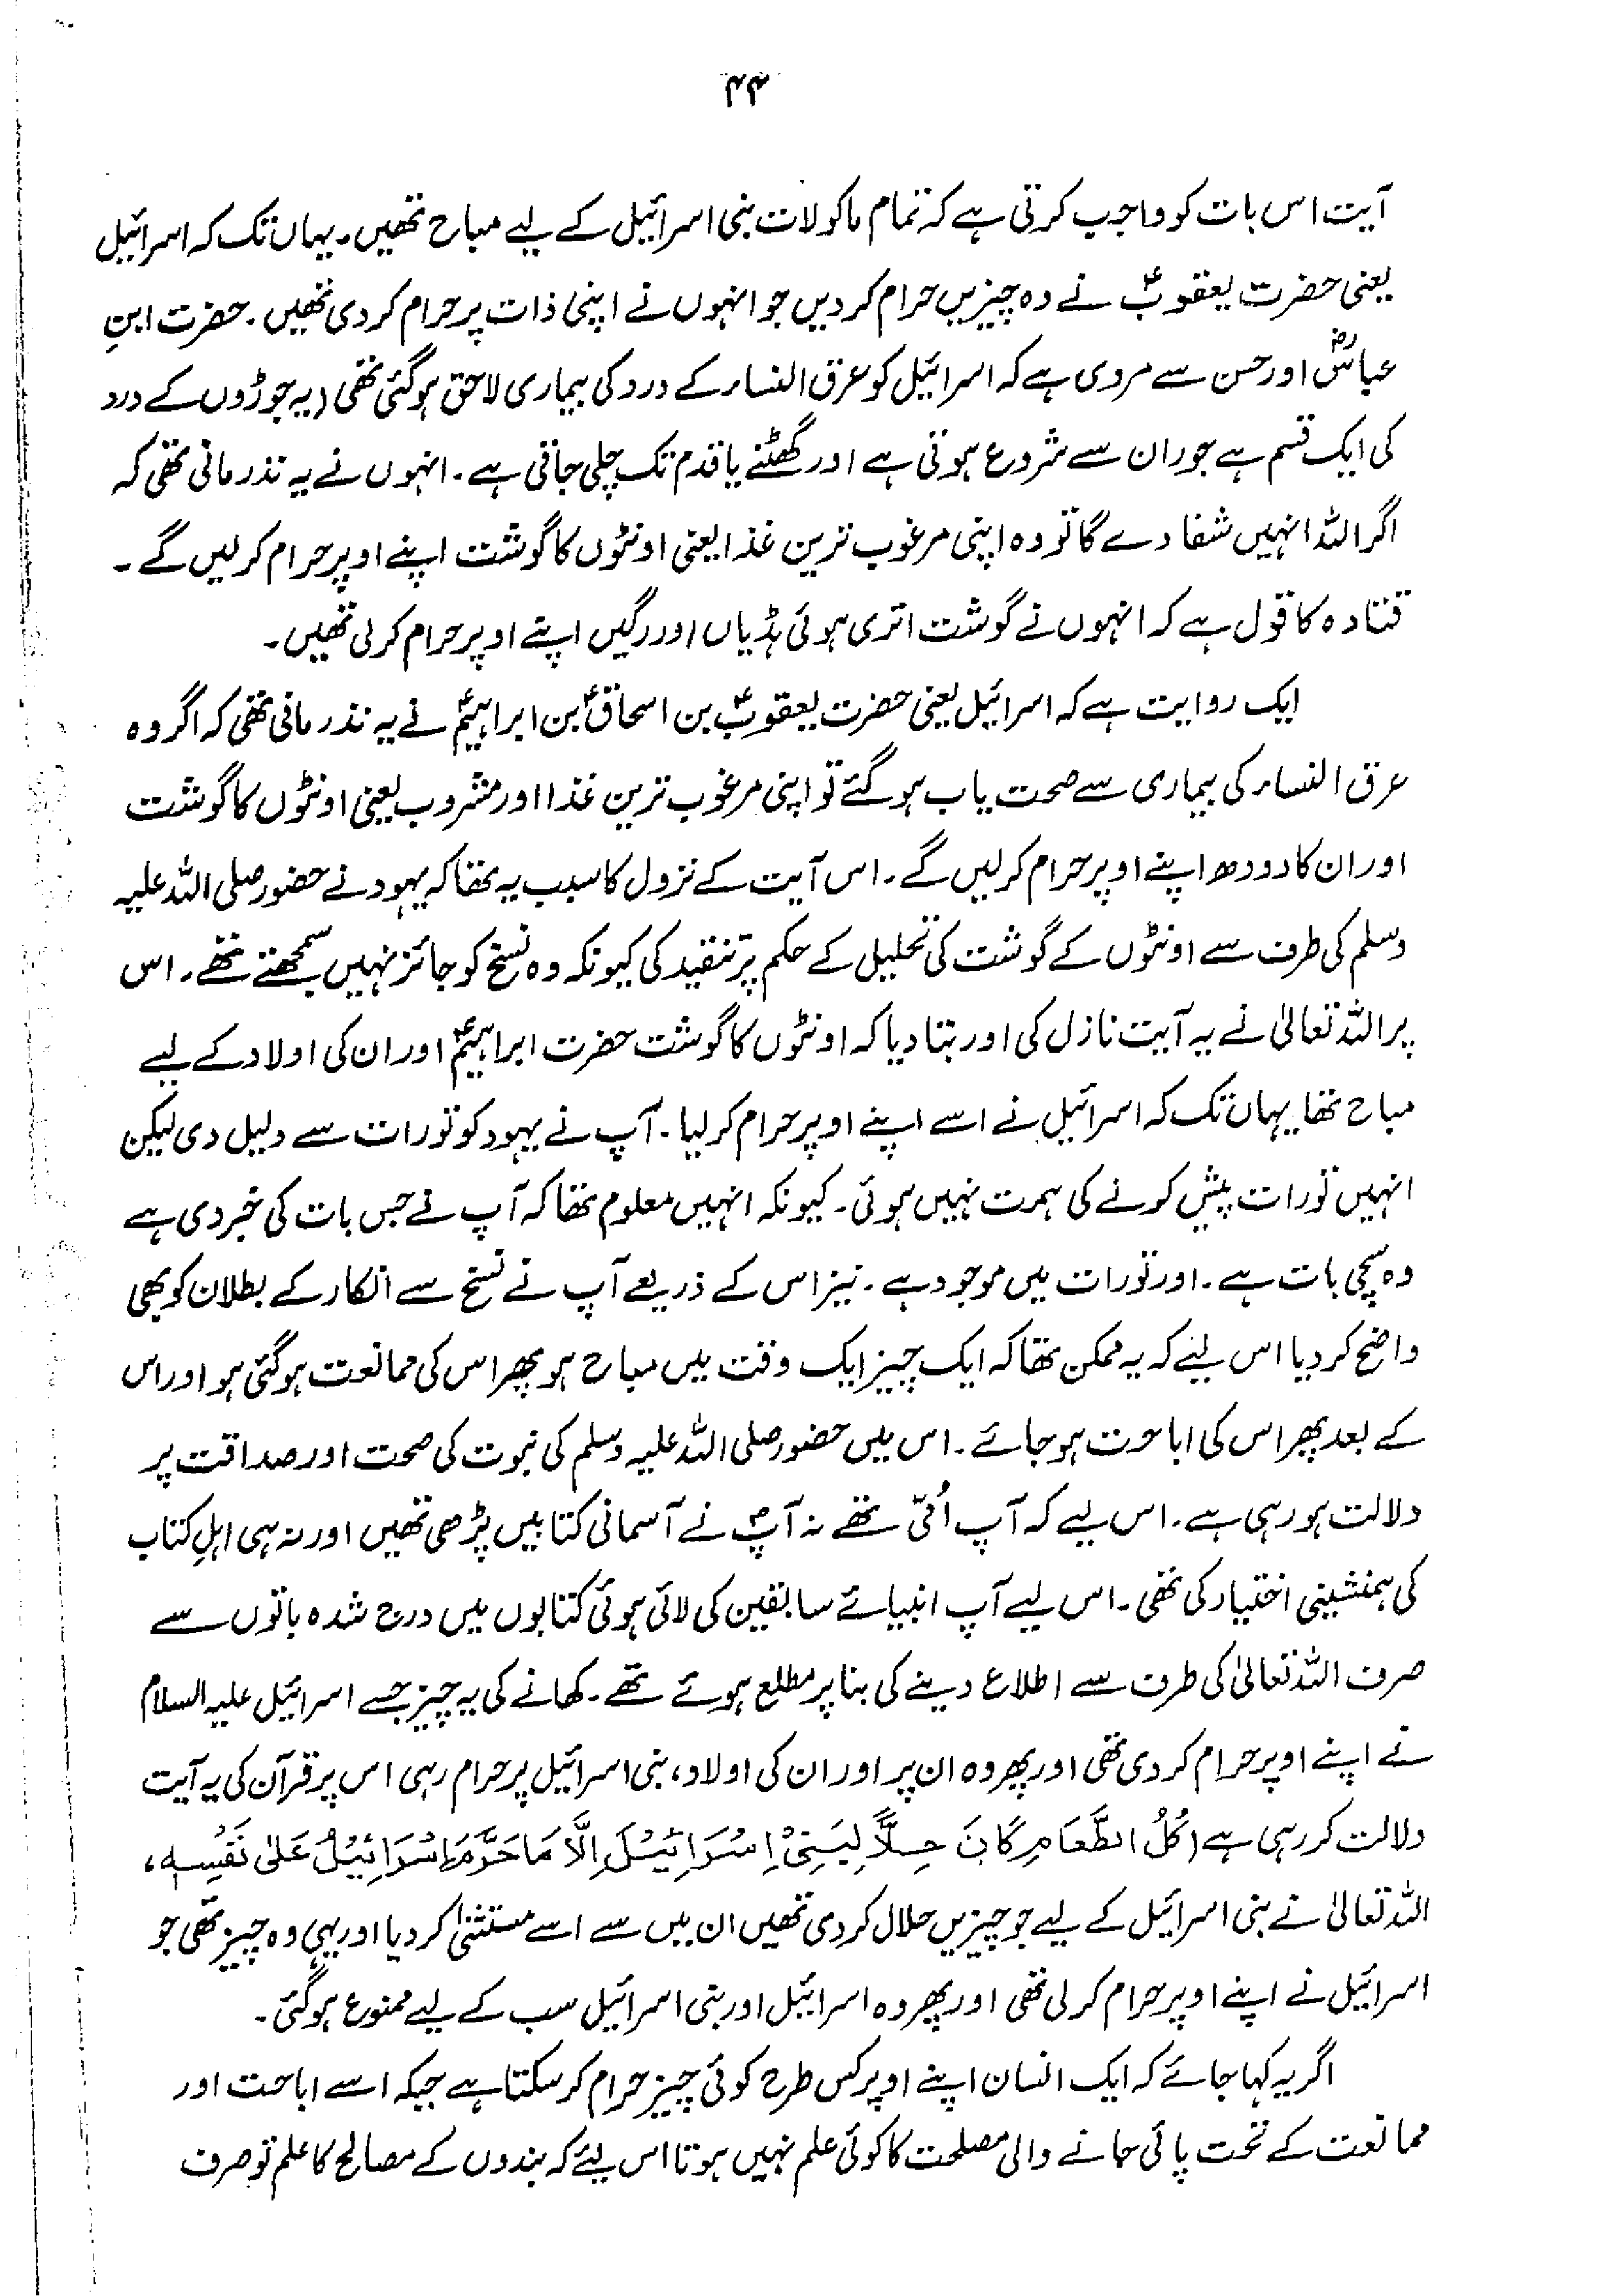 ۴۴
آیت اس بات کو واجب کرتی ہے کہ تمام ماکولات بنی اسرائیل کے لیے مباح تھیں۔ یہاں تک کہ اسرائیل
یعنی حضرت یعقوبؑ نے وہ چیزیں حرام کر دیں جو انہوں نے اپنی ذات پر حرام کر دی تھیں۔ حضرت ابنِ
عباسؓ اور حسن سے مروی ہے کہ اسرائیل کو عرق النساء کے درد کی بیماری لاحق ہو گئی تھی (یہ جوڑوں کے درد
کی ایک قسم ہے جو ران سے شروع ہوتی ہے اور گھٹنے یا قدم تک چلی جاتی ہے۔ انہوں نے یہ نذر مانی تھی کہ
اگر اللہ انہیں شفا دے گا تو وہ اپنی مرغوب ترین غذا یعنی اونٹوں کا گوشت اپنے اوپر حرام کر لیں گے۔
قتادہ کا قول ہے کہ انہوں نے گوشت اتری ہوئی ہڈیاں اور رگیں اپنے اوپر حرام کر لی تھیں۔
ایک روایت ہے کہ اسرائیل یعنی حضرت یعقوبؑ بن اسحاقؑ بن ابراہیمؑ نے یہ نذر مانی تھی کہ اگر وہ
عرق النساء کی بیماری سے صحت یاب ہو گئے تو اپنی مرغوب ترین غذا اور مشروب یعنی اونٹوں کا گوشت
اور ان کا دودھ اپنے اوپر حرام کر لیں گے۔ اس آیت کے نزول کا سبب یہ تھا کہ یہود نے حضور صلی اللہ علیہ
وسلم کی طرف سے اونٹوں کے گوشت کی تحلیل کے حکم پر تنقید کی کیونکہ وہ نسخ کو جائز نہیں سمجھتے تھے۔ اس
پر اللہ تعالیٰ نے یہ آیت نازل کی اور بتا دیا کہ اونٹوں کا گوشت حضرت ابراہیمؑ اور ان کی اولاد کے لیے
مباح تھا یہاں تک کہ اسرائیل نے اسے اپنے اوپر حرام کر لیا۔ آپ نے یہود کو تورات سے دلیل دی لیکن
انہیں تورات پیش کرنے کی ہمت نہیں ہوئی۔ کیونکہ انہیں معلوم تھا کہ آپ نے جس بات کی خبر دی ہے
وہ سچی بات ہے۔ اور تورات میں موجود ہے۔ نیز اس کے ذریعے آپ نے نسخ سے انکار کے بطلان کو بھی
واضح کر دیا اس لیئے کہ یہ ممکن تھا کہ ایک چیز ایک وقت میں مباح ہو پھر اس کی ممانعت ہو گئی ہو اور اس
کے بعد پھر اس کی اباحت ہو جائے۔ اس میں حضور صلی اللہ علیہ وسلم کی نبوت کی صحت اور صداقت پر
دلالت ہو رہی ہے۔ اس لیے کہ آپ اُمّی تھے نہ آپؐ نے آسمانی کتابیں پڑھی تھیں اور نہ ہی اہلِ کتاب
کی ہمنشینی اختیار کی تھی۔ اس لیے آپ انبیائے سابقین کی لائی ہوئی کتابوں میں درج شدہ باتوں سے
صرف اللہ تعالیٰ کی طرف سے اطلاع دینے کی بنا پر مطلع ہوئے تھے۔ کھانے کی یہ چیز جسے اسرائیل علیہ السلام
نے اپنے اوپر حرام کر دی تھی اور پھر وہ ان پر اور ان کی اولاد، بنی اسرائیل پر حرام رہی اس پر قرآن کی یہ آیت
دلالت کر رہی ہے (كُلُّ الطَّعَامِ كَانَ حِلًّا لِبَنِىْ اِسْرَائِيْلَ اِلَّا مَا حَرَّمَ اِسْرَائِيْلُ عَلٰى نَفْسِهٖ،
اللہ تعالیٰ نے بنی اسرائیل کے لیے جو چیزیں حلال کر دی تھیں ان میں سے اسے مستثنیٰ کر دیا اور یہی وہ چیز تھی جو
اسرائیل نے اپنے اوپر حرام کر لی تھی اور پھر وہ اسرائیل اور بنی اسرائیل سب کے لیے ممنوع ہو گئی۔
اگر یہ کہا جائے کہ ایک انسان اپنے اوپر کس طرح کوئی چیز حرام کر سکتا ہے جبکہ اسے اباحت اور
ممانعت کے تحت پائی جانے والی مصلحت کا کوئی علم نہیں ہوتا اس لیئے کہ بندوں کے مصالح کا علم تو صرف